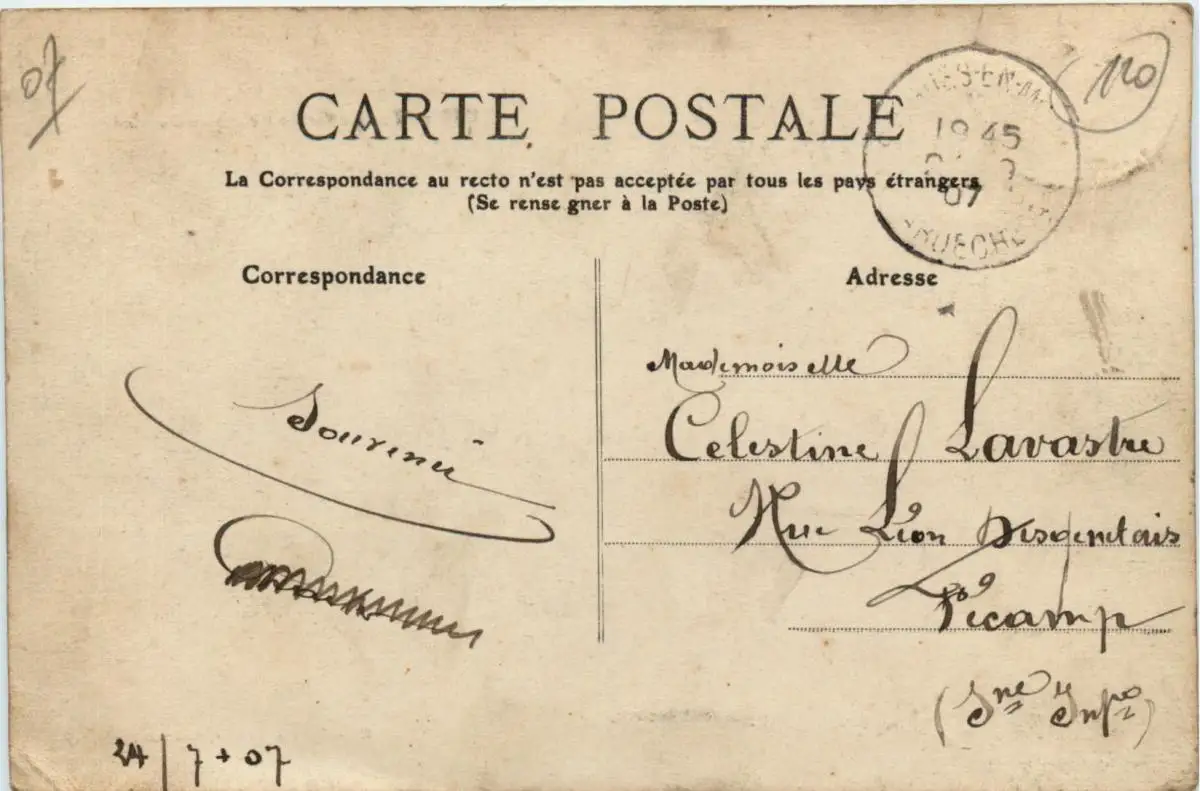 07
110
CARTE POSTALE
La Correspondance au recto n'est pas acceptée par tous les pays étrangers
(Se rense gner à la Poste)
19 45
07
Correspondance
Adresse
Souvenir
Mademoiselle
Celestine Lavastre
Rue Léon Desgenetais
Fécamp
(Sne Infre)
24/7+07